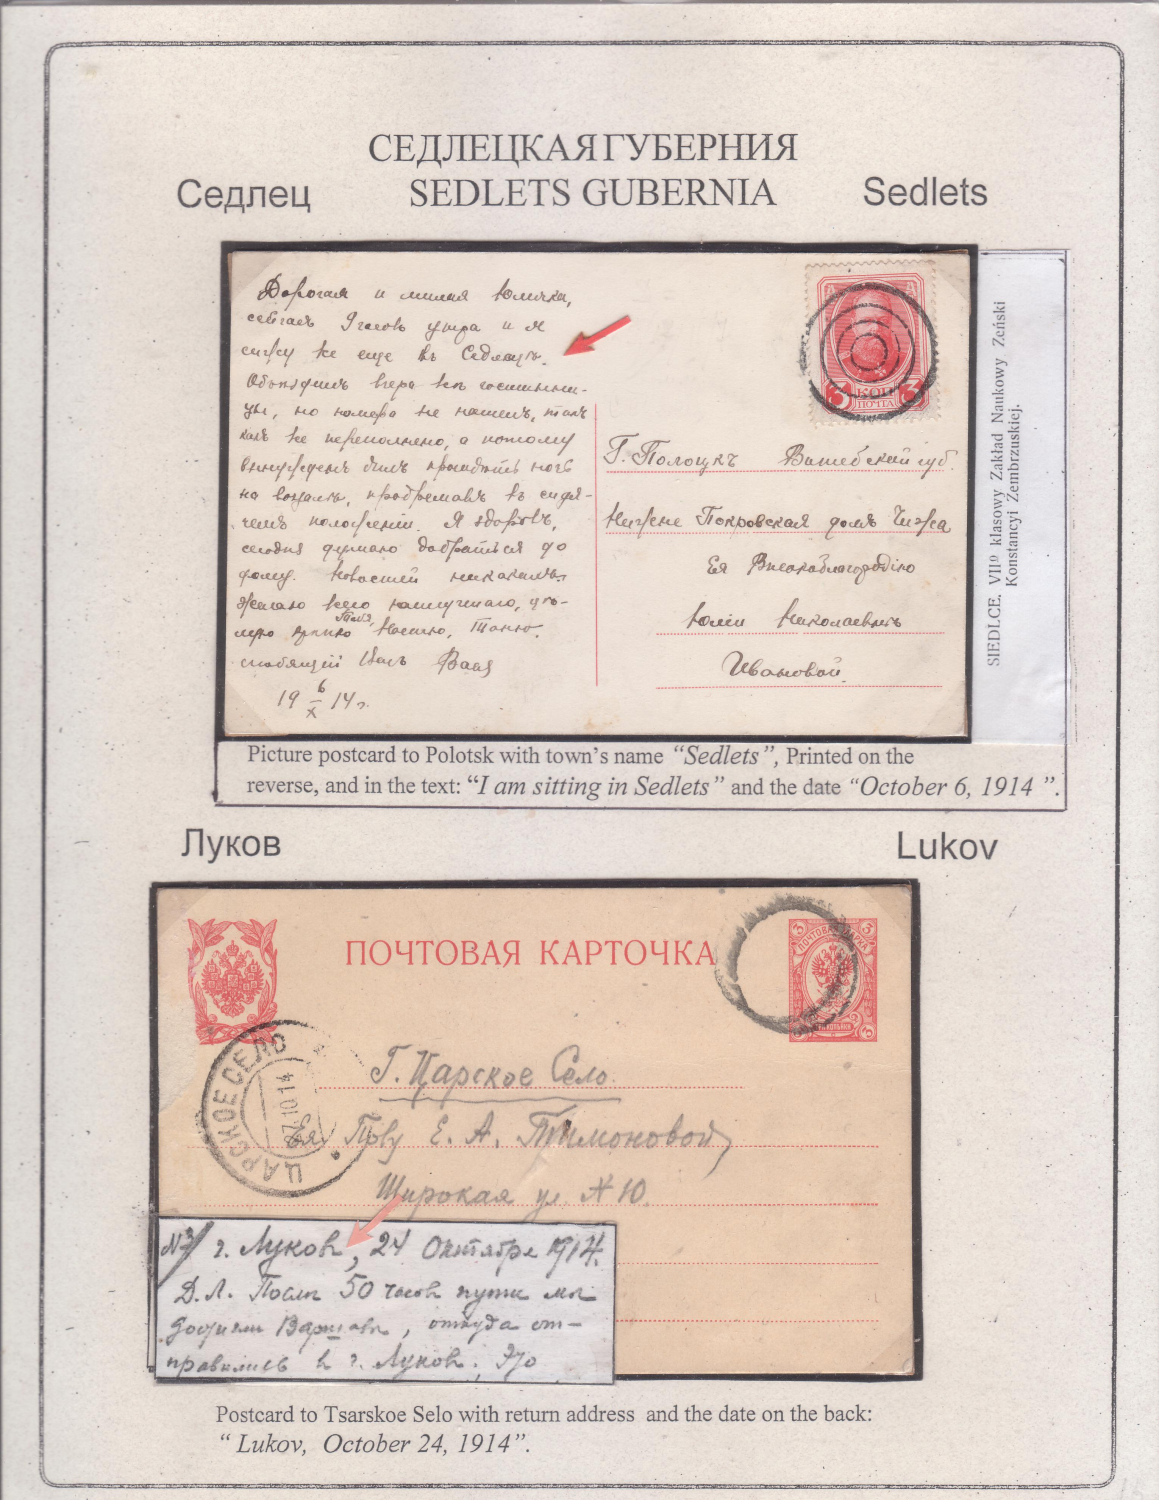 СЕДЛЕЦКАЯ ГУБЕРНИЯ
Седлец SEDLETS GUBERNIA Sedlets
Дорогая и милая Юличка,
сейчасъ 9 часовъ утра и я
сижу все еще въ Седлецѣ.
вчера
но номера не нашелъ, такъ
какъ все переполнено, а потому
вынужденъ былъ провести ночь
на вокзалѣ, продремавъ въ сидя-
чемъ положеніи. Я здоровъ,
сегодня думаю добраться до
Новостей никакихъ.
Желаю всего наилучшаго, цѣ-
лую крѣпко Тебя, Настю, Таню.
Любящій Васъ Ваня
19 6/X 14 г.
3 КОП 3
ПОЧТА
Г. Полоцкъ Витебской губ.
Нижне Покровская домъ Чижа
Ея Высокоблагородію
Юліи Николаевнѣ
Ивановой.
SIEDLCE. VIIº klasowy Zakład Naukowy Zeński
Konstancyi Zembrzuskiej.
Picture postcard to Polotsk with town's name “Sedlets”, Printed on the
reverse, and in the text: “I am sitting in Sedlets” and the date “October 6, 1914 ”.
Луков Lukov
ПОЧТОВАЯ КАРТОЧКА
3 ПОЧТОВАЯ МАРКА 3
3 3
ЦАРСКОЕ СЕЛО
27 10 14
Г. Царское Село.
Ея Прву Е. А. Тимоновой
Широкая ул. № 10.
№3/ г. Луковъ, 24 Октября 1914.
Д. Л. Послѣ 50 часовъ пути мы
доѣхали Варшавы, откуда от-
правились в г. Луковъ. Это
Postcard to Tsarskoe Selo with return address and the date on the back:
“ Lukov, October 24, 1914”.